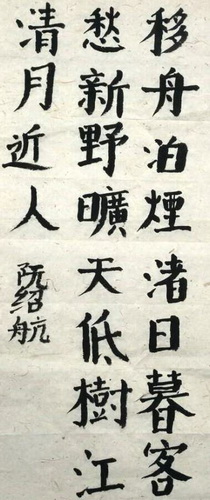 移舟泊煙渚日暮客
愁新野曠天低樹江
清月近人
阮绍航